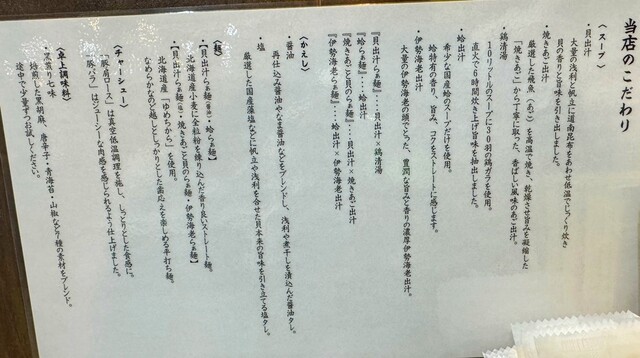 当店のこだわり
〈スープ〉
・貝出汁
大量の浅利と帆立に道南昆布をあわせ低温でじっくり炊き
貝の香りと旨味を引き出しました。
・焼きあご出汁
厳選した飛魚(あご)を高温で焼き、乾燥させ旨みを凝縮した
「焼きあご」から丁寧に取った、香ばしい風味のあご出汁。
・鶏清湯
10リットルのスープに30羽の鶏ガラを使用。
直火で6時間炊き上げ旨味を抽出しました。
・蛤出汁
希少な国産蛤のスープだけを使用。
蛤特有の香り、旨み、コクをストレートに感じます。
・伊勢海老出汁
大量の伊勢海老の頭でとった、豊潤な旨みと香りの濃厚伊勢海老出汁。
『貝出汁らぁ麺』‥‥貝出汁×鶏清湯
『焼きあごと貝のらぁ麺』‥‥貝出汁×焼きあご出汁
『蛤らぁ麺』‥‥蛤出汁
『伊勢海老らぁ麺』‥‥蛤出汁×伊勢海老出汁
〈かえし〉
・醤油
再仕込み醤油やなま醤油などをブレンドし、浅利や煮干しを漬込んだ醤油ダレ。
・塩
厳選した国産藻塩などに帆立や浅利を合せた貝本来の旨味を引き立てる塩ダレ。
〈麺〉
・【貝出汁らぁ麺(醤油)・蛤らぁ麺】
北海道産小麦に全粒粉を練り込んだ香り良いストレート麺。
・【貝出汁らぁ麺(塩)・焼きあごと貝のらぁ麺・伊勢海老らぁ麺】
北海道産「ゆめちから」を使用。
なめらかなのど越しとしっかりとした歯応えを楽しめる手打ち麺。
〈チャーシュー〉
「豚肩ロース」は真空低温調理を施し、しっとりとした食感に。
「豚バラ」はジューシーな肉感を感じられるよう仕上げました。
〈卓上調味料〉
・黒煎り七味
焙煎した黒胡麻、唐辛子・青海苔・山椒など7種の素材をブレンド。
途中で少量ずつお試しください。